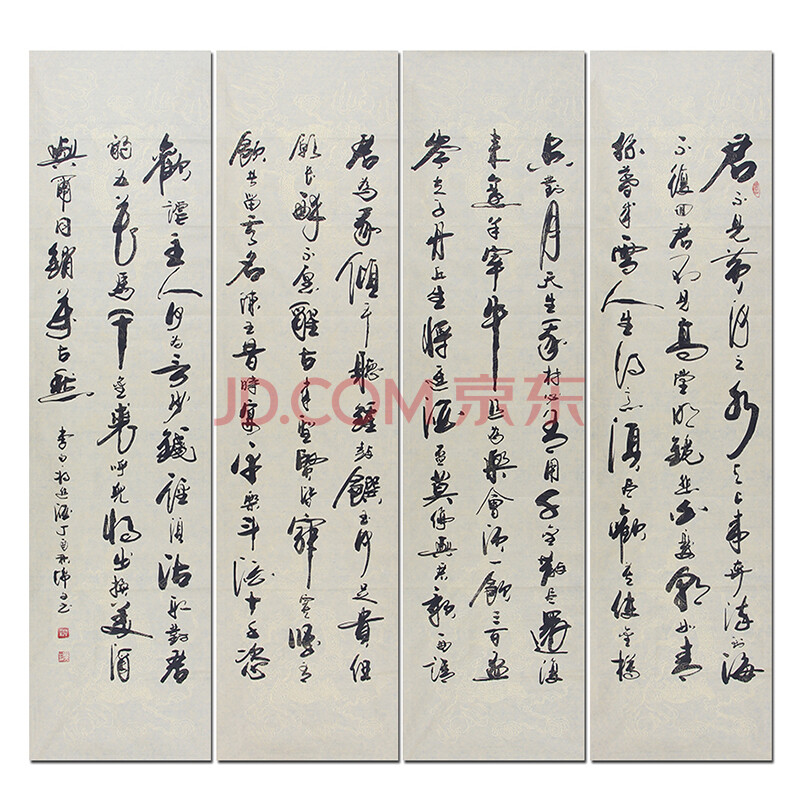 君不見黃河之水天上來奔流到海
不復回君不見高堂明鏡悲白髮朝如青
絲暮成雪人生得意須盡歡莫使金樽
空對月天生我材必有用千金散盡還復
來烹羊宰牛且為樂會須一飲三百盃
岑夫子丹丘生將進酒盃莫停與君歌一曲請
君為我傾耳聽鐘鼓饌玉何足貴但
願長醉不願醒古來聖賢皆寂寞惟有
飲者留其名陳王昔時宴平樂斗酒十千恣
歡謔主人何為言少錢徑須沽取對君
酌五花馬千金裘呼兒將出換美酒
與爾同銷萬古愁
李白將進酒丁亥秋
JD.COM 京东